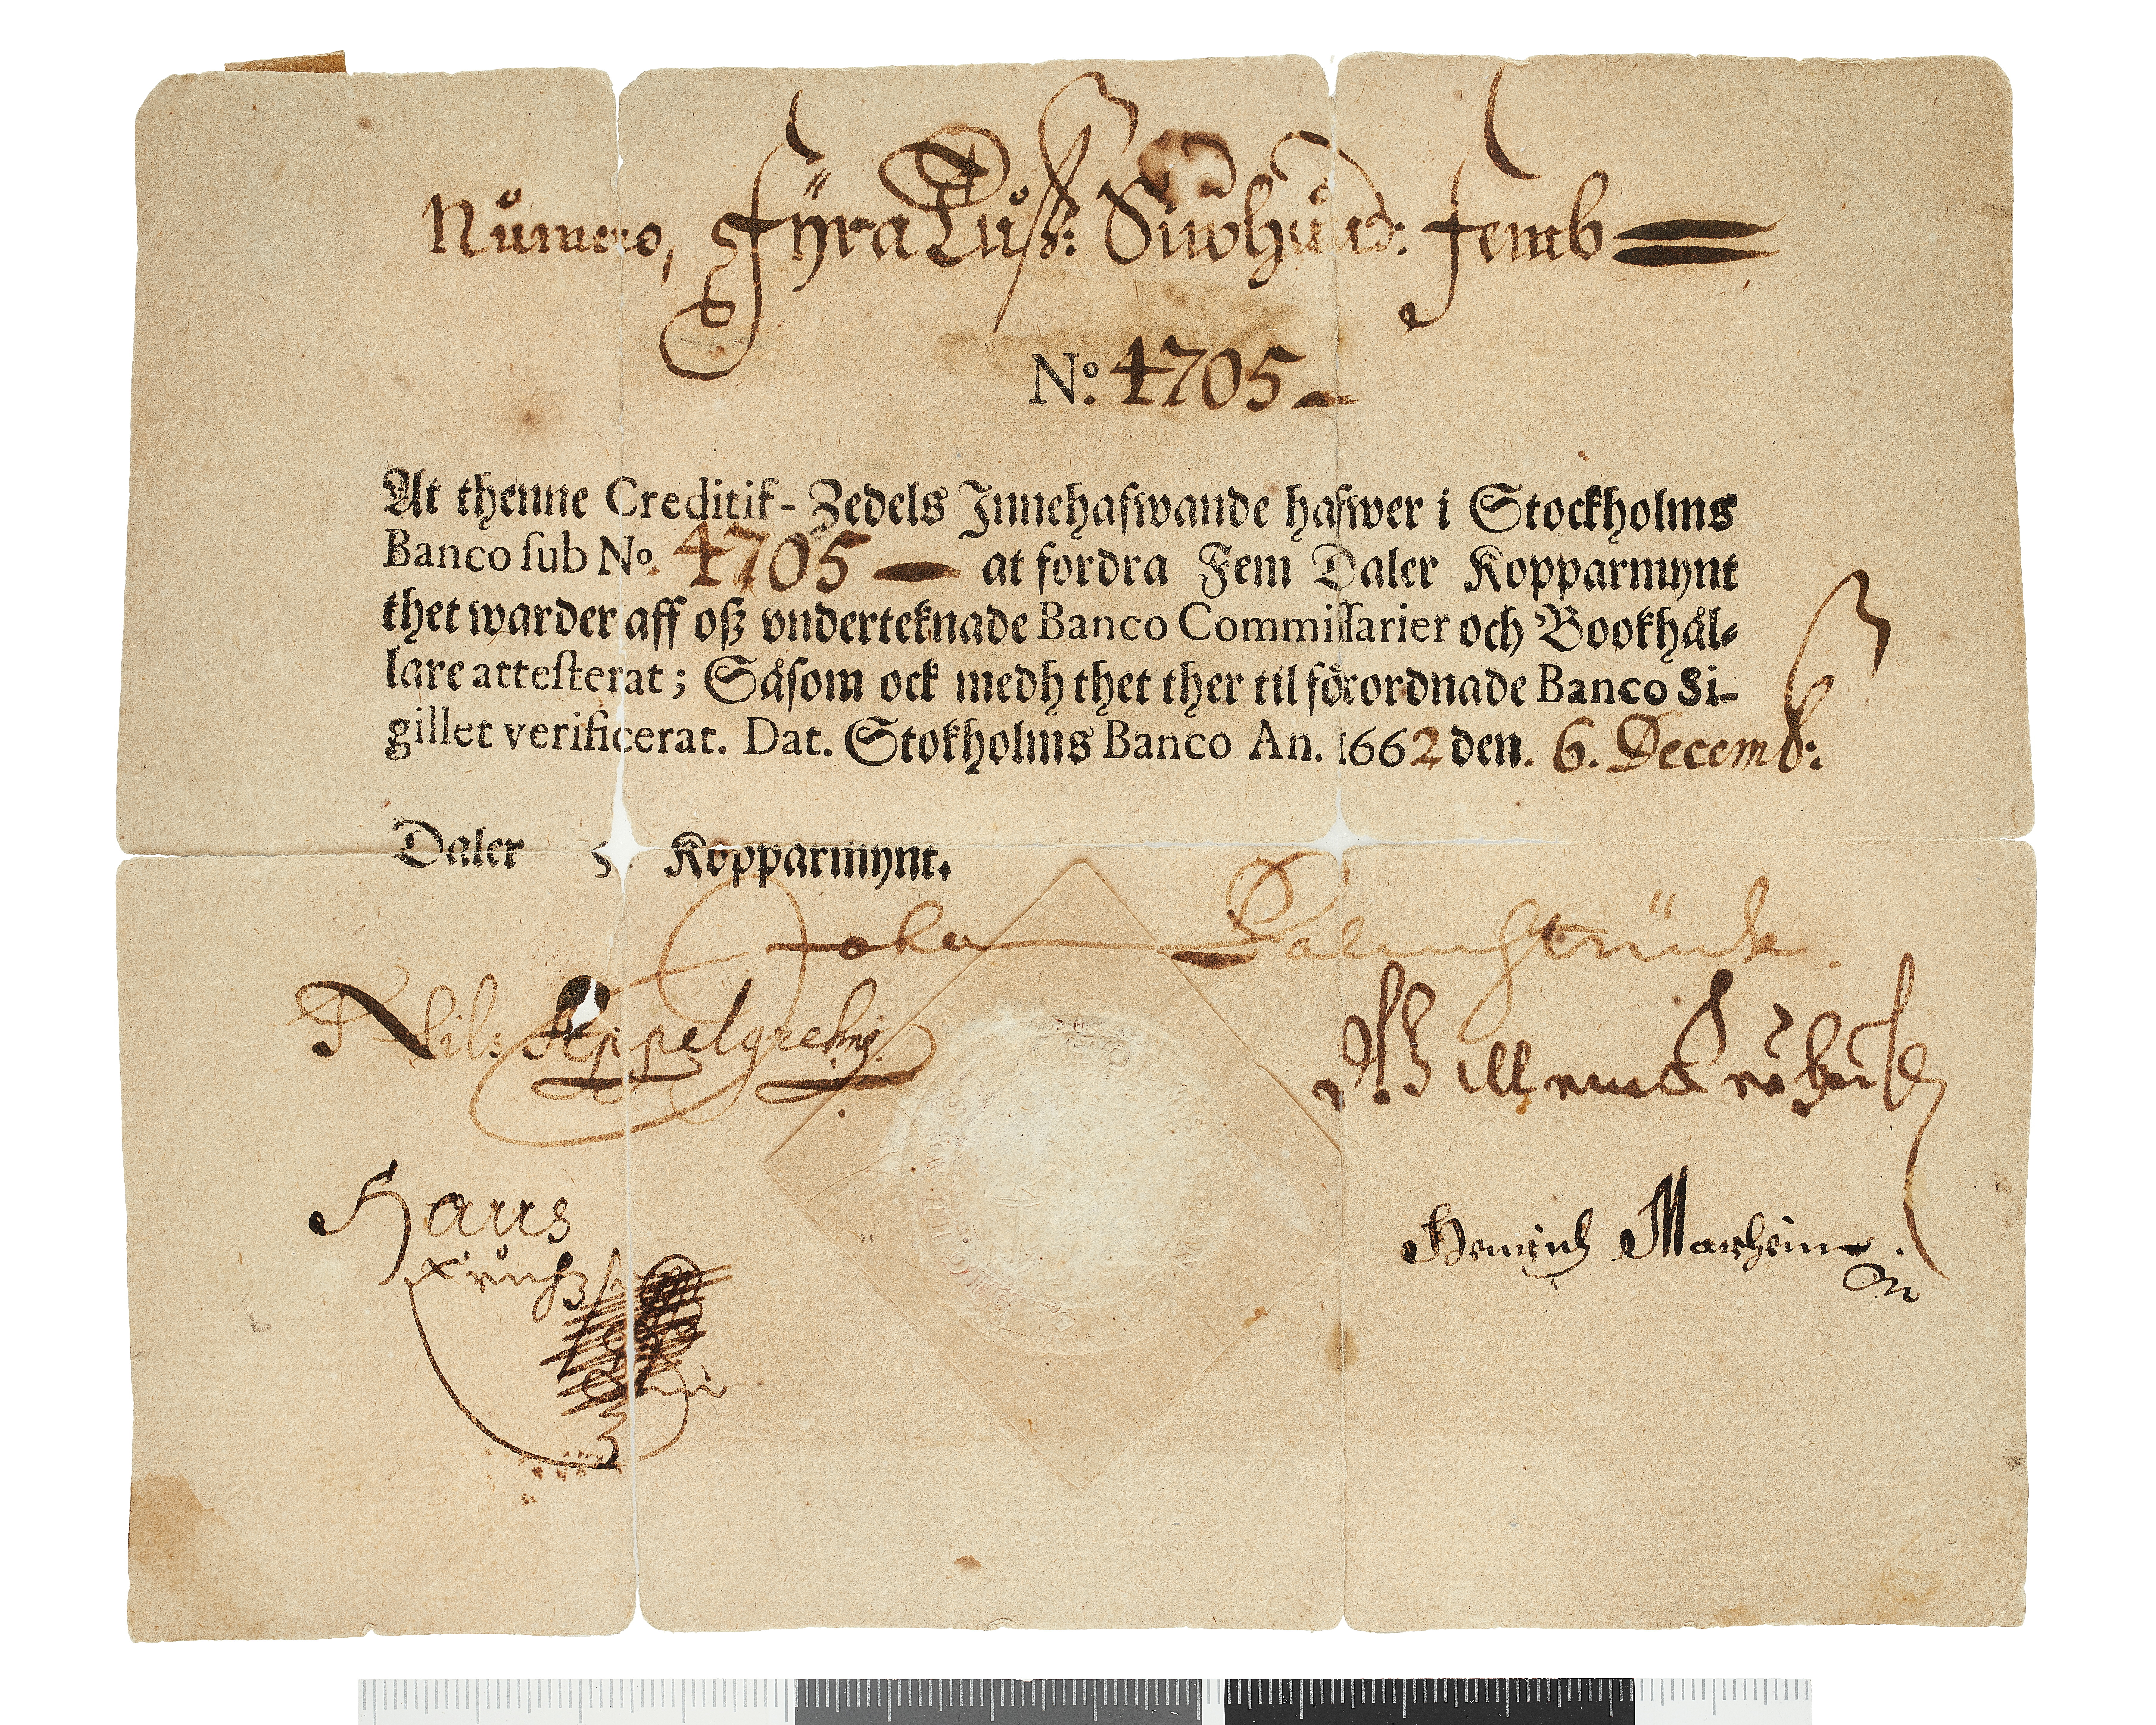 Nůmero, Fÿra Tůß: Siwhůnd: Femb
No. 4705
At thenne Creditif-Zedels Innehafwande hafwer i Stockholms
Banco ſub No. 4705 at fordra Fem Daler Kopparmynt
thet warder aff oß vnderteknade Banco Commiſſarier och Bookhål-
lare atteſterat; Såſom ock medh thet ther til förordnade Banco Si-
gillet verificerat. Dat. Stokholms Banco An. 1662 den. 6. Decemb:
Daler 5. Kopparmynt.
Johan Palmstrück.
Nils Appelgrehn
Hans
Heinrich Marhein